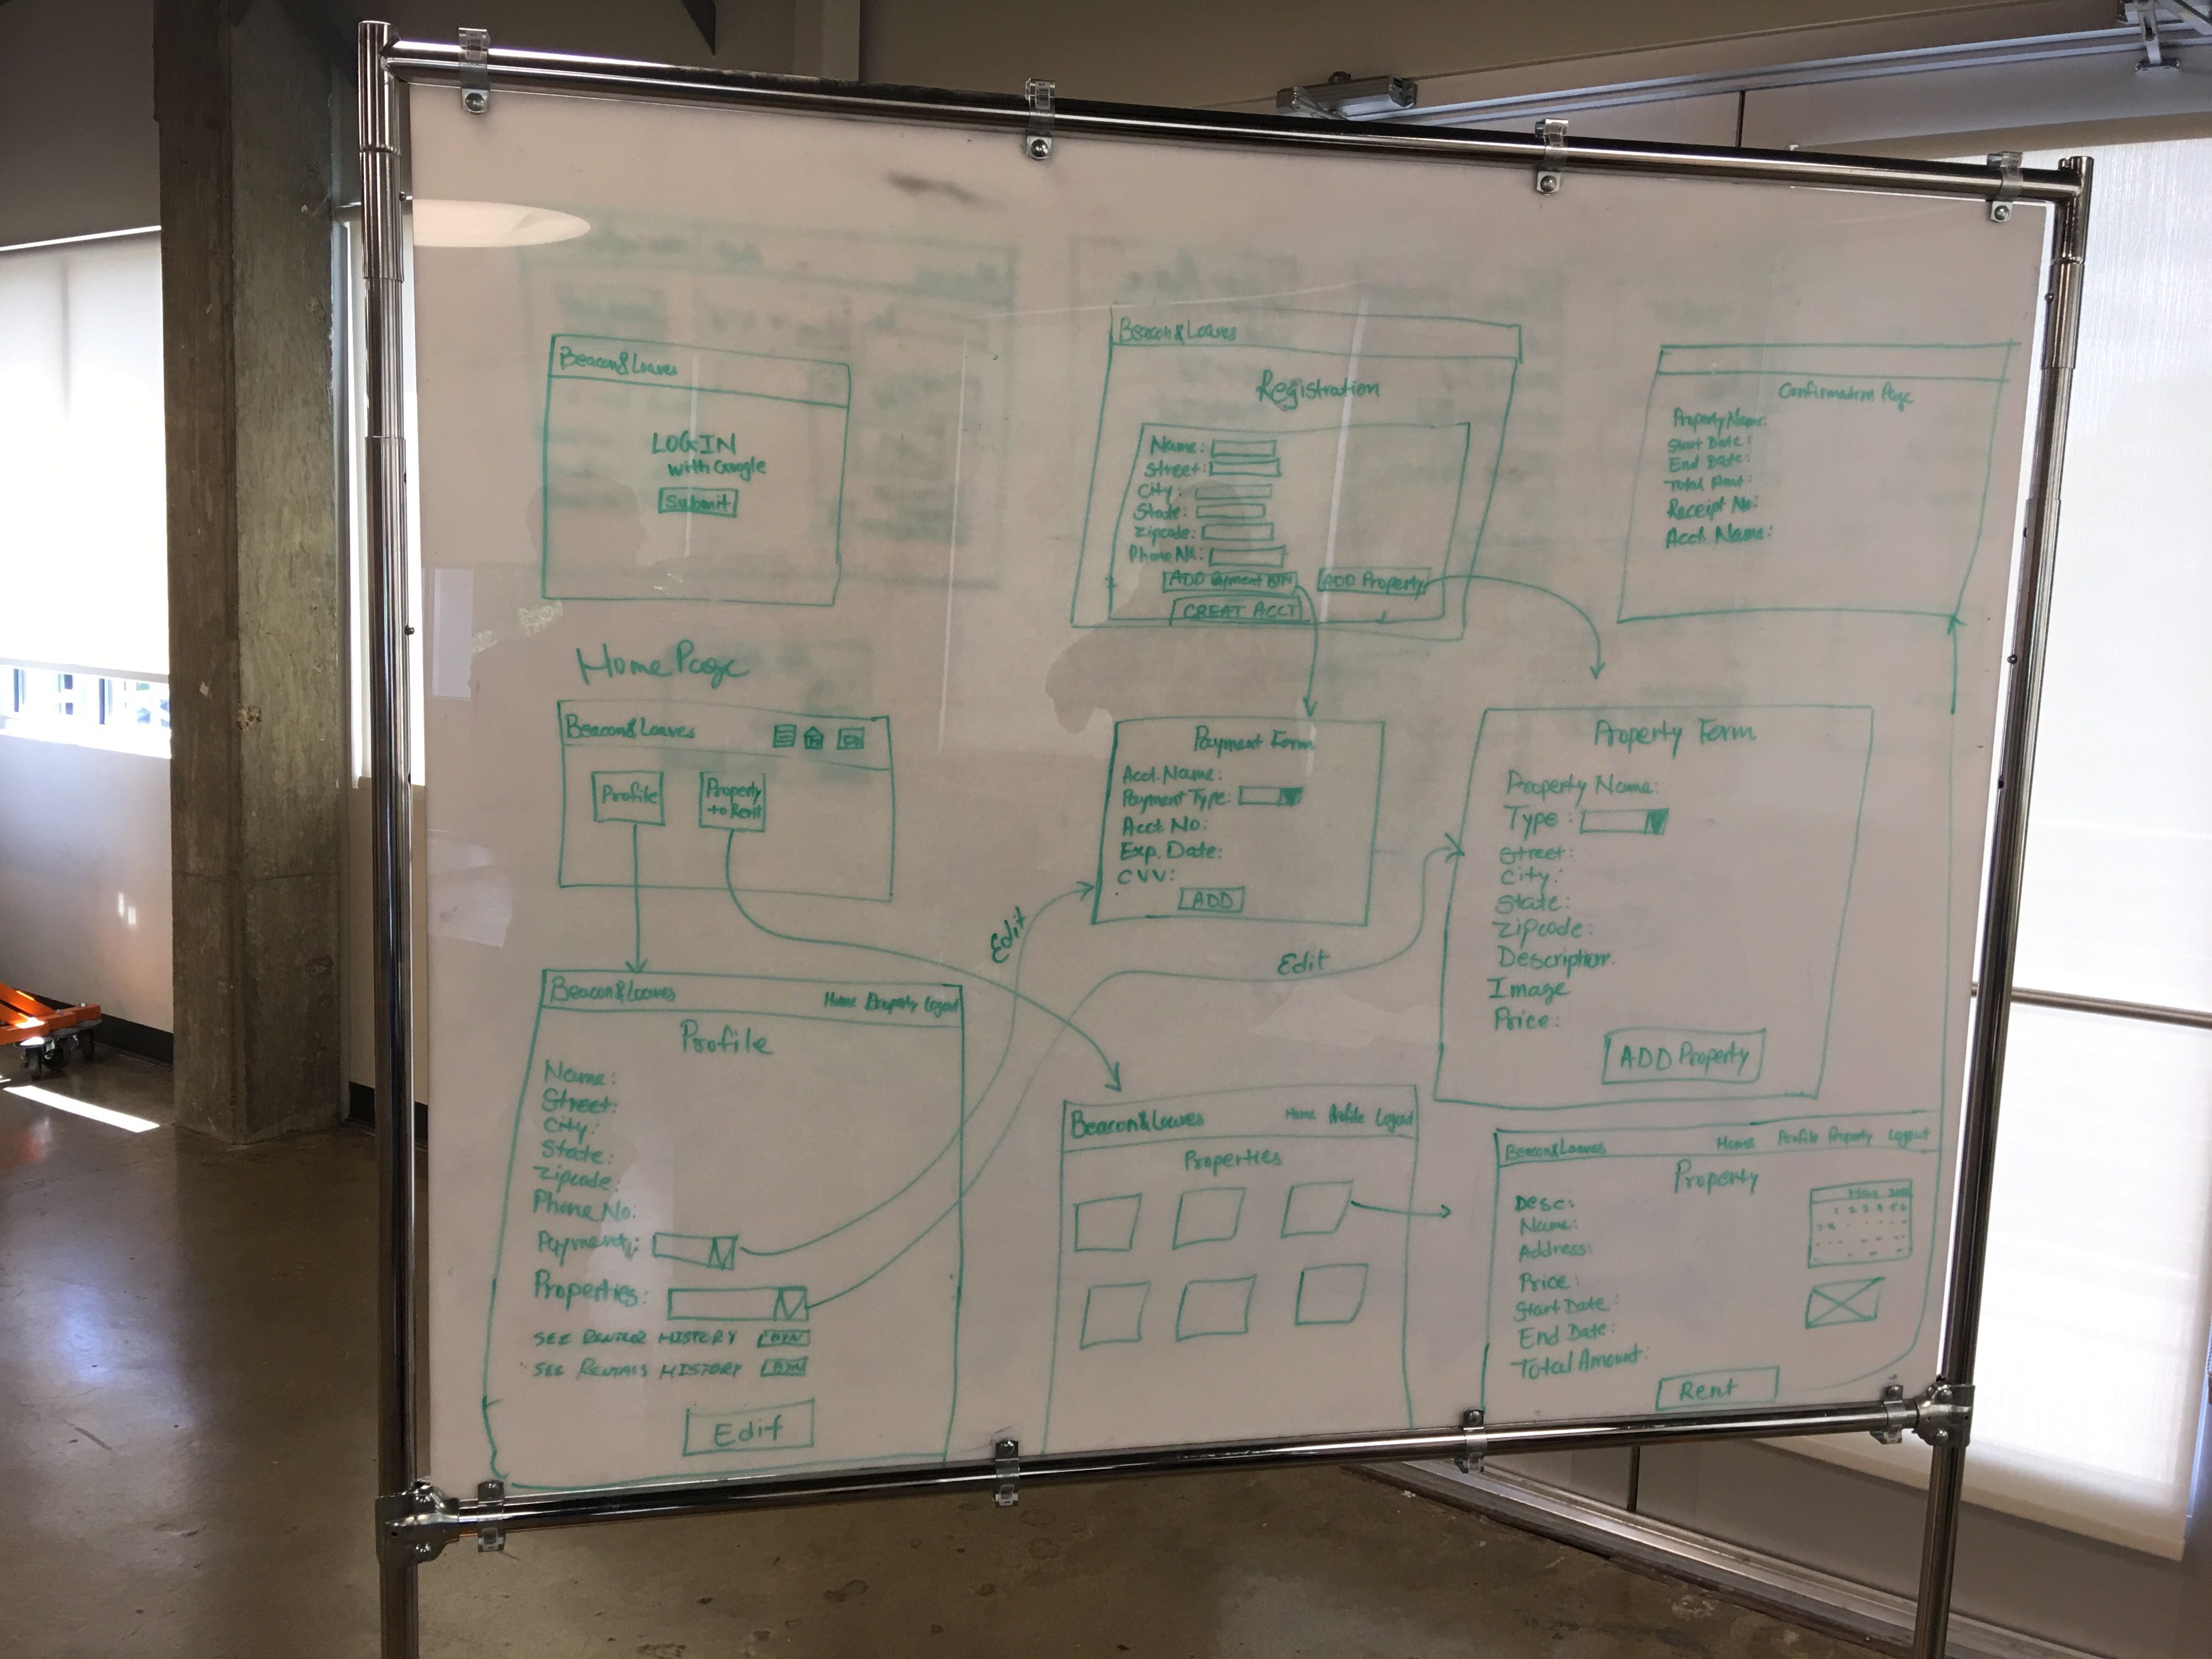 Beacon&Loaves
LOGIN
with Google
Submit
Beacon&Loaves
Registration
Name:
Street:
City:
State:
Zipcode:
Phone No:
ADD Payment BTN
ADD Property
CREAT ACCT
Confirmation Page
Property Name:
Start Date:
End Date:
Total Amt:
Receipt No:
Acct. Name:
Home Page
Beacon&Loaves
Profile
Property
to Rent
Payment Form
Acct. Name:
Payment Type:
Acct. No:
Exp. Date:
CVV:
ADD
Property Form
Property Name:
Type:
Street:
City:
State:
Zipcode:
Description.
Image
Price:
ADD Property
Edit
Edit
Beacon&Loaves
Home Property Logout
Profile
Name:
Street:
City:
State:
Zipcode:
Phone No:
Payment:
Properties:
SEE HISTORY BTN
SEE RENTALS HISTORY BTN
Edit
Beacon&Loaves
Home Profile Logout
Properties
Beacon&Loaves
Home Profile Property Logout
Property
Desc:
Name:
Address:
Price:
Start Date:
End Date:
Total Amount:
May
Rent